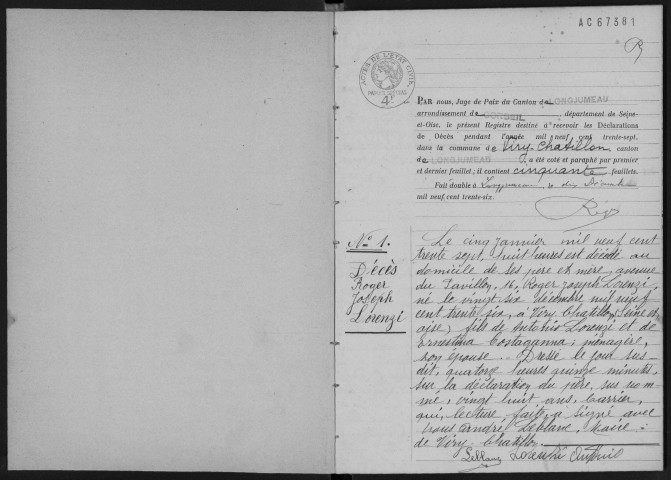 AC67381
ACTES DE L'ETAT CIVIL
4F
PAR nous, Juge de Paix du Canton de LONGJUMEAU
arrondissement de CORBEIL, département de Seine-
et-Oise, le présent Registre destiné à recevoir les Déclarations
de Décès pendant l'année mil neuf cent trente-sept.
dans la commune de Viry-Chatillon canton
de LONGJUMEAU, a été coté et paraphé par premier
et dernier feuillet; il contient cinquante feuillets.
Fait double à Longjumeau, le dix Décembre
mil neuf cent trente-six.
No 1.
Décès
Roger
Joseph
Lorenzi
Le cinq janvier mil neuf cent
trente sept, huit heures est décédé au
domicile de ses père et mère, avenue
du Pavillon, 16, Roger Joseph Lorenzi,
né le vingt six décembre mil neuf
cent trente six, à Viry Chatillon, (Seine et
oise), fils de Antonio Lorenzi et de
Ernestina Costaganna, ménagère,
son épouse. Dressé le jour sus-
dit, quatorze heures quinze minutes,
sur la déclaration du père, sus nom-
mé, vingt huit ans, carrier,
qui, lecture faite, a signé avec
nous André Leblanc, Maire
de Viry Chatillon.
Leblanc Lorenzi Antonio